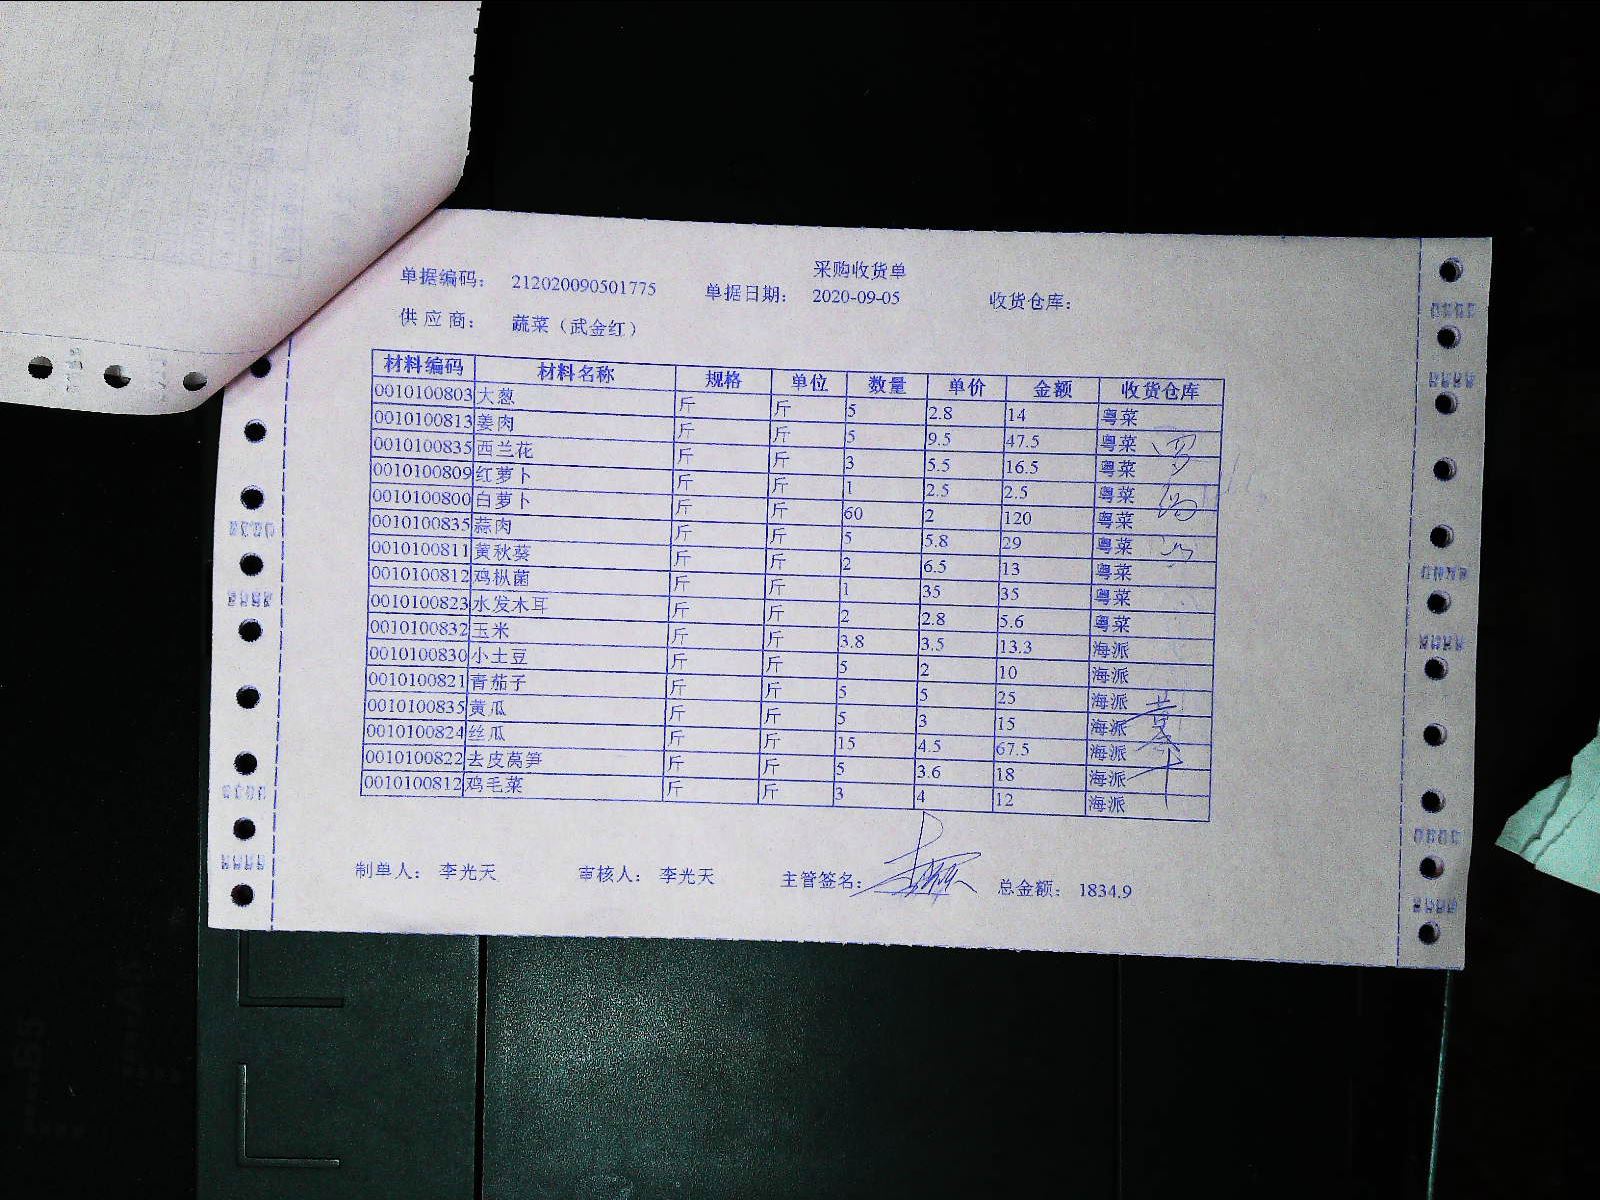 采购收货单
单据编码： 212020090501775 单据日期： 2020-09-05 收货仓库：
供应商： 蔬菜（武金红）
材料编码 材料名称 规格 单位 数量 单价 金额 收货仓库
0010100803 大葱 斤 斤 5 2.8 14 粤菜
0010100813 姜肉 斤 斤 5 9.5 47.5 粤菜
0010100835 西兰花 斤 斤 3 5.5 16.5 粤菜
0010100809 红萝卜 斤 斤 1 2.5 2.5 粤菜
0010100800 白萝卜 斤 斤 60 2 120 粤菜
0010100835 蒜肉 斤 斤 5 5.8 29 粤菜
0010100811 黄秋葵 斤 斤 2 6.5 13 粤菜
0010100812 鸡枞菌 斤 斤 1 35 35 粤菜
0010100823 水发木耳 斤 斤 2 2.8 5.6 粤菜
0010100832 玉米 斤 斤 3.8 3.5 13.3 海派
0010100830 小土豆 斤 斤 5 2 10 海派
0010100821 青茄子 斤 斤 5 5 25 海派
0010100835 黄瓜 斤 斤 5 3 15 海派
0010100824 丝瓜 斤 斤 15 4.5 67.5 海派
0010100822 去皮莴笋 斤 斤 5 3.6 18 海派
0010100812 鸡毛菜 斤 斤 3 4 12 海派
制单人： 李光天 审核人： 李光天 主管签名： 总金额： 1834.9